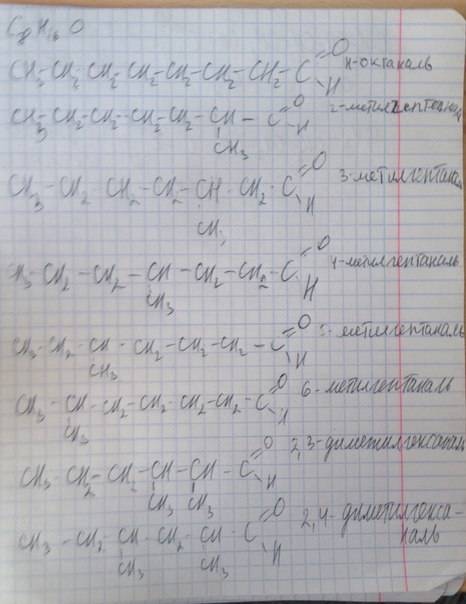 C₈H₁₆O
CH₃-CH₂-CH₂-CH₂-CH₂-CH₂-CH₂-C=O H н-октаналь
CH₃-CH₂-CH₂-CH₂-CH₂-CH-C=O H 2-метилгептаналь
CH₃
CH₃-CH₂-CH₂-CH₂-CH-CH₂-C=O H 3-метилгептаналь
CH₃
CH₃-CH₂-CH₂-CH-CH₂-CH₂-C=O H 4-метилгептаналь
CH₃
CH₃-CH₂-CH-CH₂-CH₂-CH₂-C=O H 5-метилгептаналь
CH₃
CH₃-CH-CH₂-CH₂-CH₂-CH₂-C=O H 6-метилгептаналь
CH₃
CH₃-CH₂-CH₂-CH-CH-C=O H 2,3-диметилгексаналь
CH₃ CH₃
CH₃-CH₂-CH-CH₂-CH-C=O H 2,4-диметилгекса-
CH₃ CH₃ наль